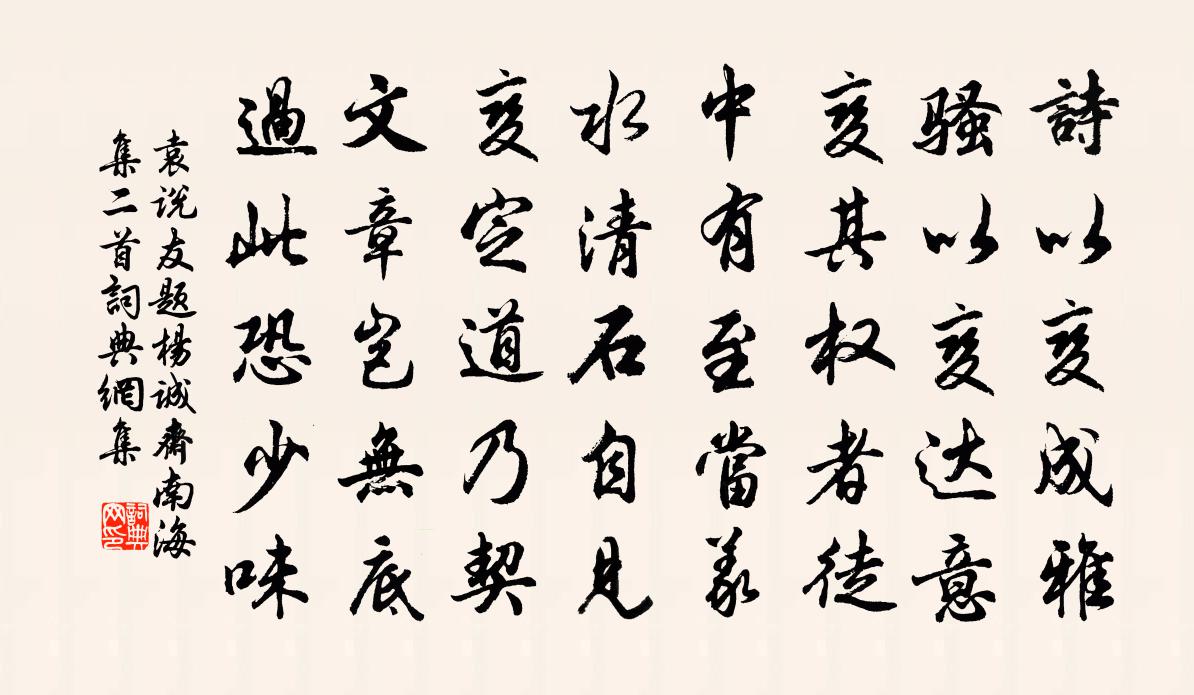 詩以变成雅
骚以变达意
变其权者徒
中有至當义
水清石自見
变定道乃契
文章岂無底
過此恐少味
袁说友题楊诚齋南海
集二首詞典網集
詞典
网印